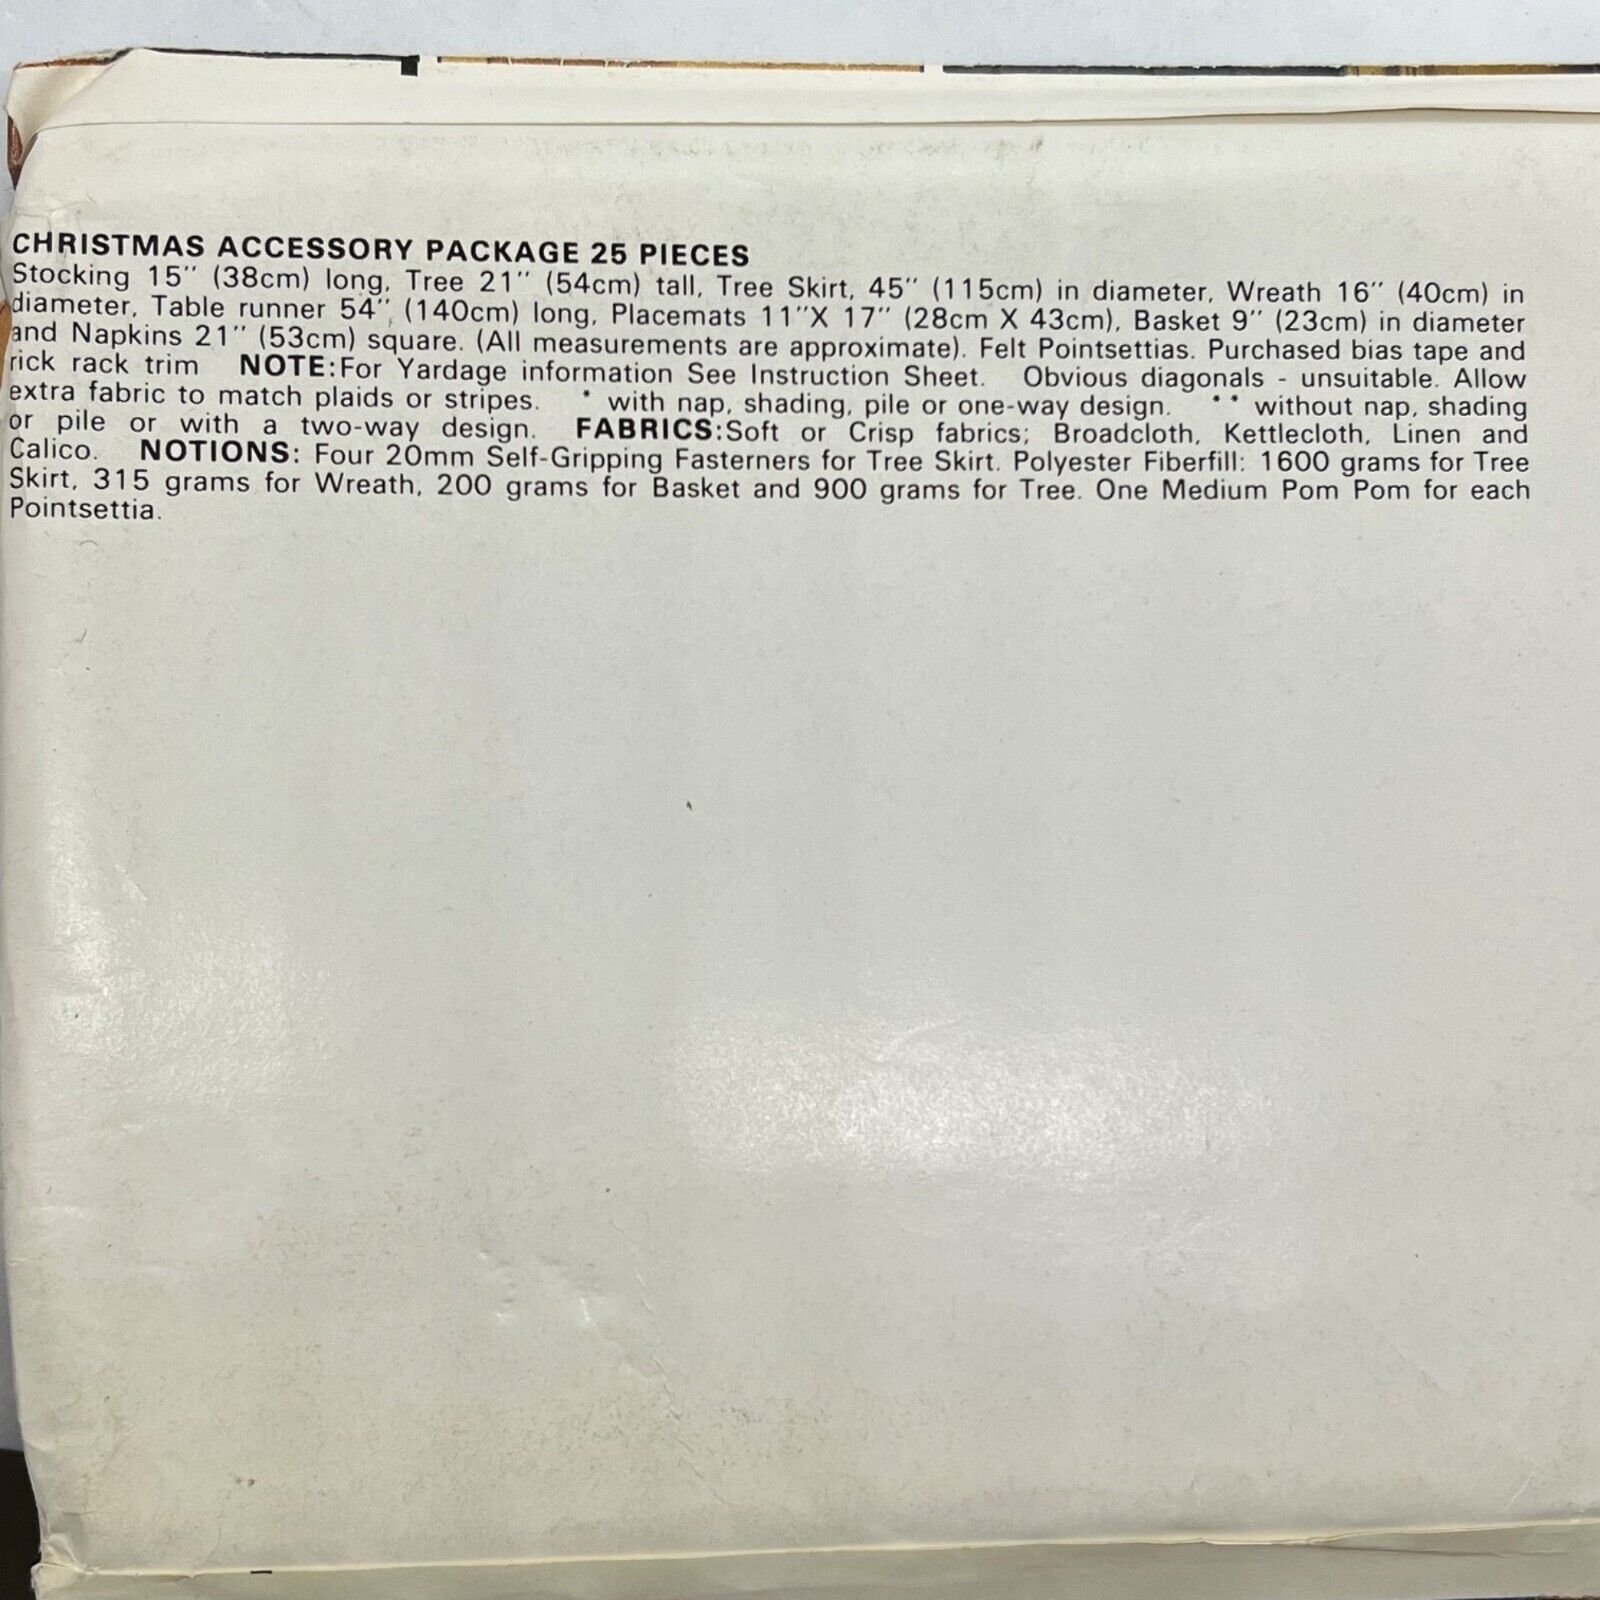 CHRISTMAS ACCESSORY PACKAGE 25 PIECES
Stocking 15" (38cm) long, Tree 21" (54cm) tall, Tree Skirt, 45" (115cm) in diameter, Wreath 16" (40cm) in
diameter, Table runner 54" (140cm) long, Placemats 11"X 17" (28cm X 43cm), Basket 9" (23cm) in diameter
and Napkins 21" (53cm) square. (All measurements are approximate). Felt Pointsettias. Purchased bias tape and
rick rack trim NOTE:For Yardage information See Instruction Sheet. Obvious diagonals - unsuitable. Allow
extra fabric to match plaids or stripes. * with nap, shading, pile or one-way design. ** without nap, shading
or pile or with a two-way design. FABRICS:Soft or Crisp fabrics; Broadcloth, Kettlecloth, Linen and
Calico. NOTIONS: Four 20mm Self-Gripping Fasterners for Tree Skirt. Polyester Fiberfill: 1600 grams for Tree
Skirt, 315 grams for Wreath, 200 grams for Basket and 900 grams for Tree. One Medium Pom Pom for each
Pointsettia.